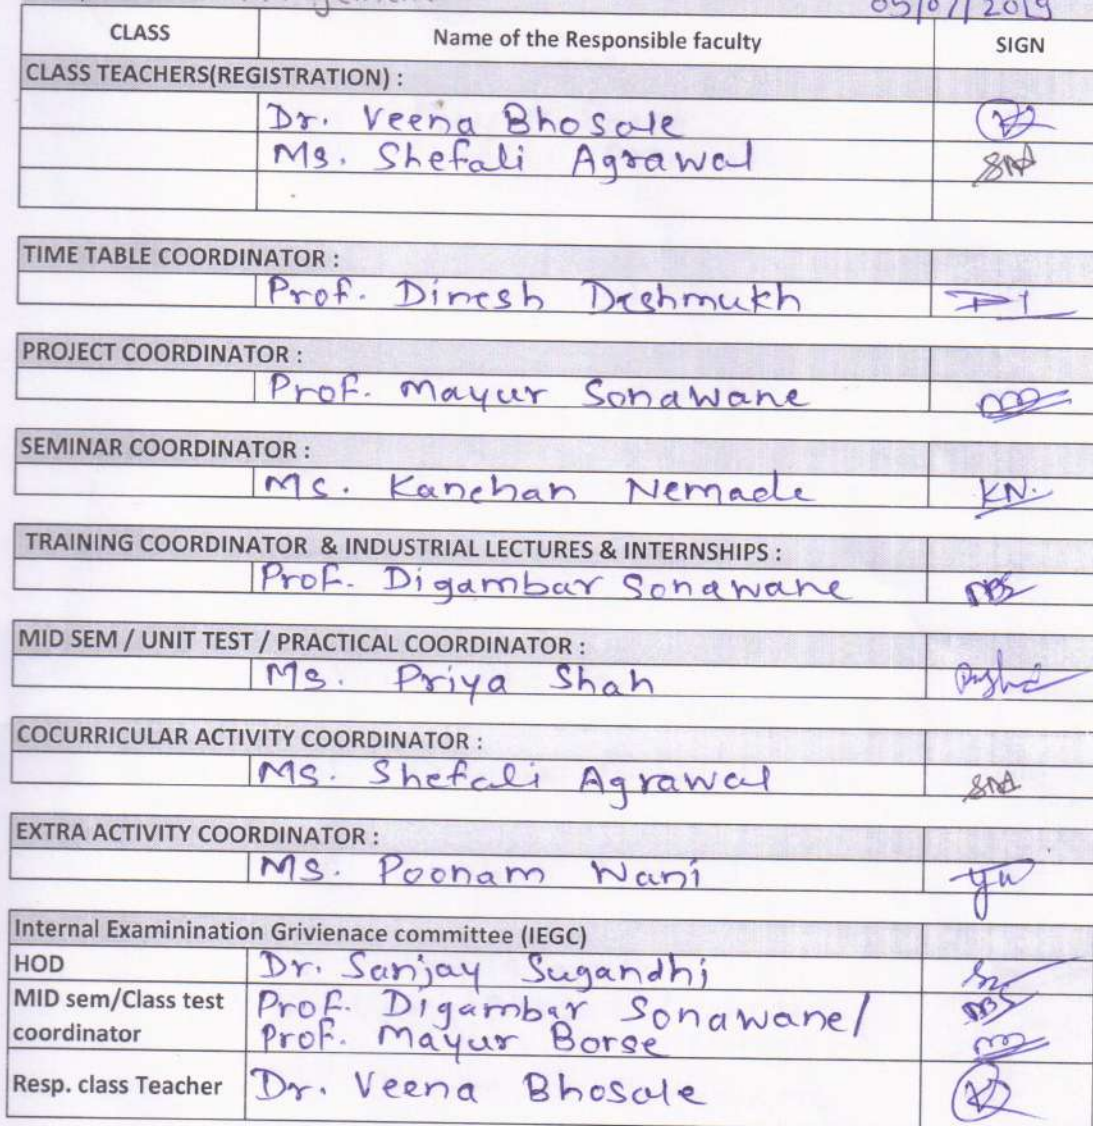 05/07/2019
CLASS Name of the Responsible faculty SIGN
CLASS TEACHERS(REGISTRATION) :
Dr. Veena Bhosale
Ms. Shefali Agrawal
TIME TABLE COORDINATOR :
Prof. Dinesh Deshmukh
PROJECT COORDINATOR :
Prof. Mayur Sonawane
SEMINAR COORDINATOR :
Ms. Kanchan Nemade KN.
TRAINING COORDINATOR & INDUSTRIAL LECTURES & INTERNSHIPS :
Prof. Digambar Sonawane DBS
MID SEM / UNIT TEST / PRACTICAL COORDINATOR :
Ms. Priya Shah
COCURRICULAR ACTIVITY COORDINATOR :
Ms. Shefali Agrawal
EXTRA ACTIVITY COORDINATOR :
Ms. Poonam Wani
Internal Examinination Grivienace committee (IEGC)
HOD Dr. Sanjay Sugandhi
MID sem/Class test Prof. Digambar Sonawane/ DBS
coordinator Prof. Mayur Borse
Resp. class Teacher Dr. Veena Bhosale